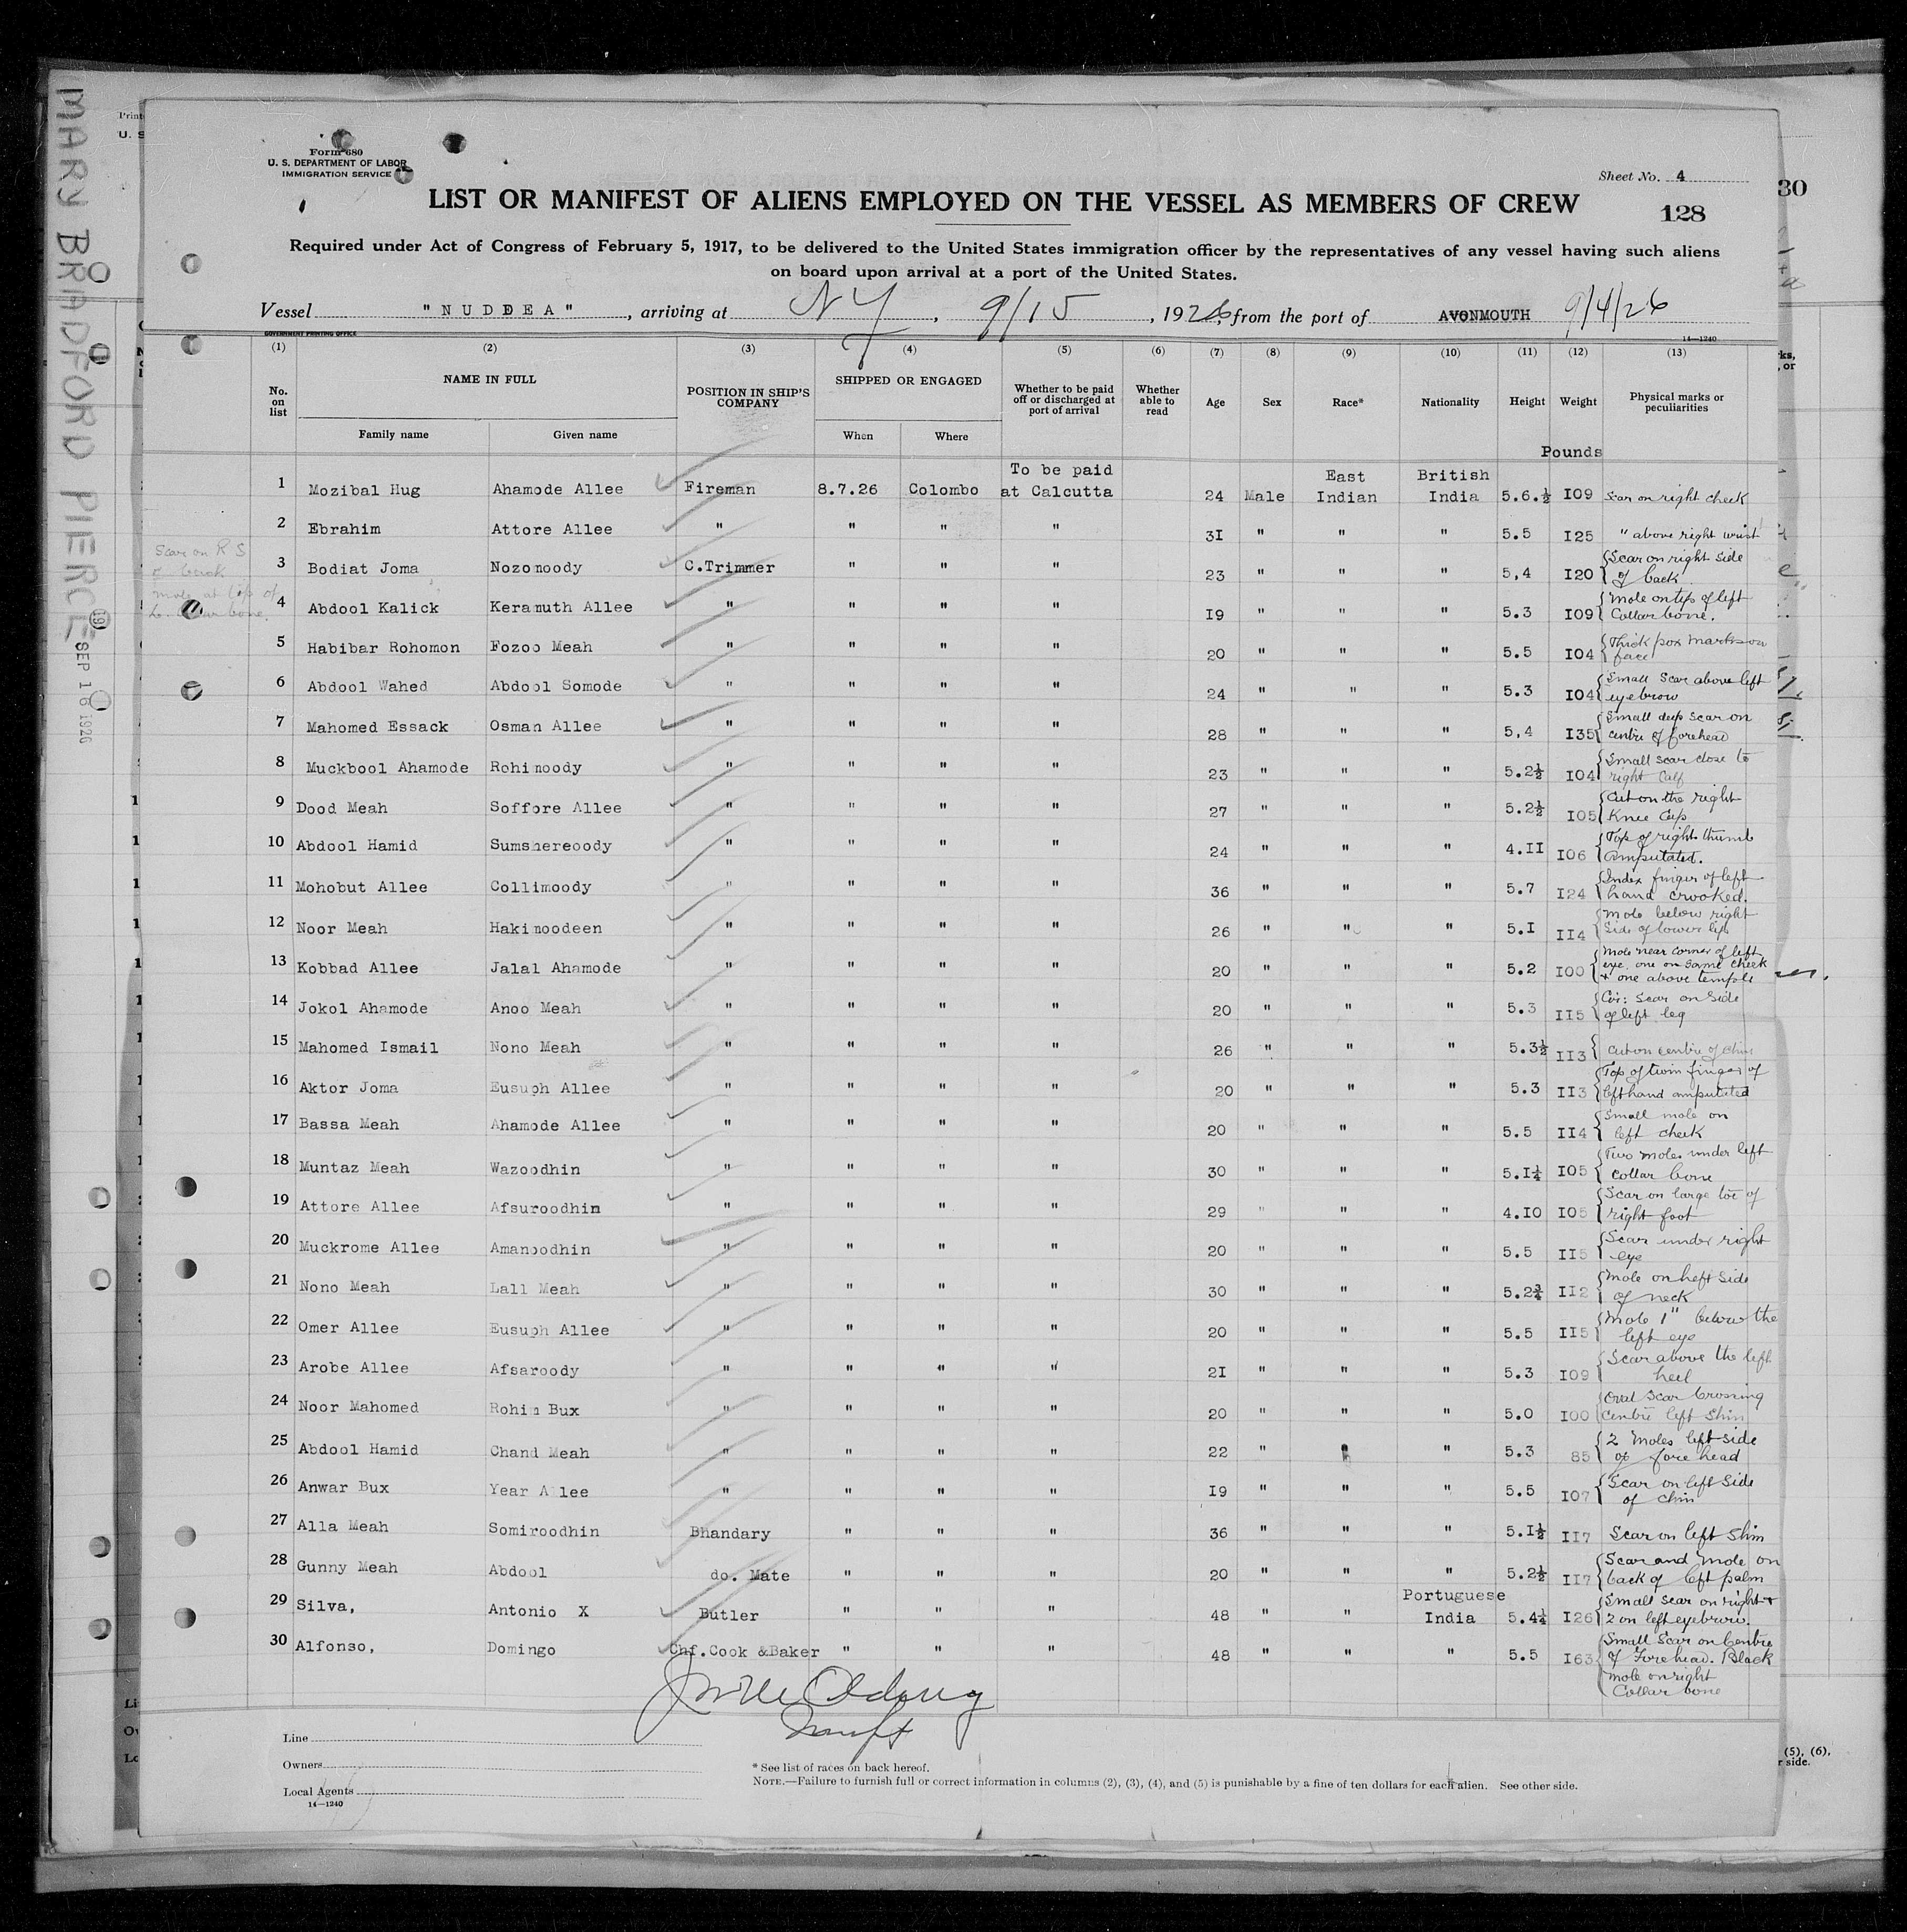 Form 680
U. S. DEPARTMENT OF LABOR
IMMIGRATION SERVICE
Sheet No. 4
LIST OR MANIFEST OF ALIENS EMPLOYED ON THE VESSEL AS MEMBERS OF CREW
128
30
Required under Act of Congress of February 5, 1917, to be delivered to the United States immigration officer by the representatives of any vessel having such aliens
on board upon arrival at a port of the United States.
Vessel "NUDDEA", arriving at NY, 9/15, 1926, from the port of AVONMOUTH 9/4/26
GOVERNMENT PRINTING OFFICE
14—1240
(1) (2) (3) (4) (5) (6) (7) (8) (9) (10) (11) (12) (13)
No. on list NAME IN FULL POSITION IN SHIP'S COMPANY SHIPPED OR ENGAGED Whether to be paid off or discharged at port of arrival Whether able to read Age Sex Race* Nationality Height Weight Physical marks or peculiarities
Family name Given name When Where
Pounds
1 Mozibal Hug Ahamode Allee Fireman 8.7.26 Colombo To be paid at Calcutta 24 Male East Indian British India 5.6.½ I09 Scar on right cheek
2 Ebrahim Attore Allee " " " " 3I " " " 5.5 I25 " above right wrist
3 Bodiat Joma Nozomoody C.Trimmer " " " 23 " " " 5,4 I20 Scar on right side of back
4 Abdool Kalick Keramuth Allee " " " " I9 " " " 5.3 I09 Mole on top of left Collar bone.
5 Habibar Rohomon Fozoo Meah " " " " 20 " " " 5.5 I04 Thick pox marks on face
6 Abdool Wahed Abdool Somode " " " " 24 " " " 5.3 I04 Small Scar above left eyebrow
7 Mahomed Essack Osman Allee " " " " 28 " " " 5,4 I35 Small deep scar on centre of forehead
8 Muckbool Ahamode Rohimoody " " " " 23 " " " 5.2½ I04 Small scar close to right Calf
9 Dood Meah Soffore Allee " " " " 27 " " " 5.2½ I05 Cut on the right Knee Cap
10 Abdool Hamid Sumshereoody " " " " 24 " " " 4.II I06 Top of right thumb amputated.
11 Mohobut Allee Collimoody " " " " 36 " " " 5.7 I24 Index finger of left hand crooked.
12 Noor Meah Hakimoodeen " " " " 26 " " " 5.I II4 Mole below right Side of lower lip
13 Kobbad Allee Jalal Ahamode " " " " 20 " " " 5.2 I00 Mole near corner of left eye, one on same cheek + one above temple
14 Jokol Ahamode Anoo Meah " " " " 20 " " " 5.3 II5 Cir: Scar on Side of left leg
15 Mahomed Ismail Nono Meah " " " " 26 " " " 5.3½ II3 Cut on centre of chin
16 Aktor Joma Eusuph Allee " " " " 20 " " " 5.3 II3 Top of twin finger of left hand amputated
17 Bassa Meah Ahamode Allee " " " " 20 " " " 5.5 II4 Small mole on left cheek
18 Muntaz Meah Wazoodhin " " " " 30 " " " 5.I¼ I05 Two moles under left collar bone
19 Attore Allee Afsuroodhin " " " " 29 " " " 4.I0 I05 Scar on large toe of right foot
20 Muckrome Allee Amanoodhin " " " " 20 " " " 5.5 II5 Scar under right eye
21 Nono Meah Lall Meah " " " " 30 " " " 5.2¾ II2 Mole on left side of neck
22 Omer Allee Eusuph Allee " " " " 20 " " " 5.5 II5 Mole 1" below the left eye
23 Arobe Allee Afsaroody " " " " 2I " " " 5.3 I09 Scar above the left heel
24 Noor Mahomed Rohim Bux " " " " 20 " " " 5.0 I00 Oval Scar Crossing Centre left Shin
25 Abdool Hamid Chand Meah " " " " 22 " " " 5.3 85 2 Moles left side of forehead
26 Anwar Bux Year Allee " " " " I9 " " " 5.5 I07 Scar on left Side of chin
27 Alla Meah Somiroodhin Bhandary " " " 36 " " " 5.I½ II7 Scar on left Shin
28 Gunny Meah Abdool do. Mate " " " 20 " " " 5.2½ II7 Scar and Mole on back of left palm
29 Silva, Antonio X Butler " " " 48 " " Portuguese India 5.4¼ I26 Small scar on right + 2 on left eyebrow.
30 Alfonso, Domingo Chf.Cook &Baker " " " 48 " " " 5.5 I63 Small Scar on Centre of Forehead. Black mole on right Collar bone
Scar on R S
of back
mole at top of
L. collar bone.
MARY BRADFORD PIERCE
SEP 16 1926
Line
Owners
Local Agents
14—1240
* See list of races on back hereof.
NOTE.—Failure to furnish full or correct information in columns (2), (3), (4), and (5) is punishable by a fine of ten dollars for each alien. See other side.
(5), (6),
r side.